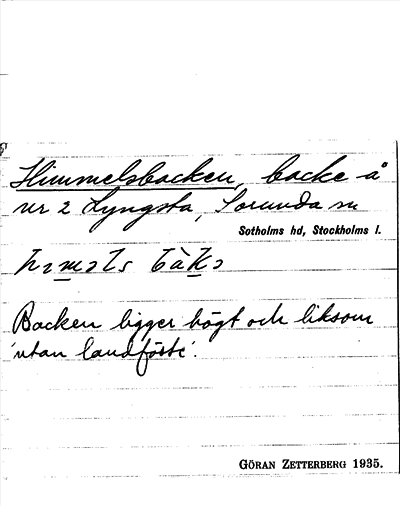 Himmelsbacken, backe å
nr 2 Lyngsta, Sorunda sn
Sotholms hd, Stockholms l.
Backen ligger högt och liksom
'utan landfäste'.
GÖRAN ZETTERBERG 1935.